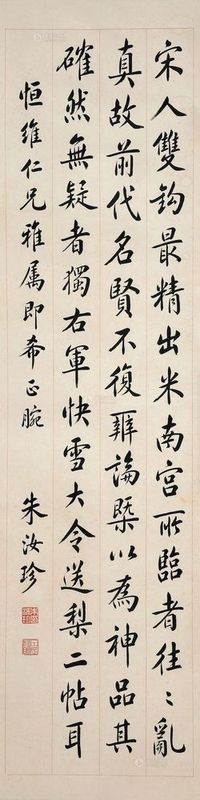 宋人雙鈎最精出米南宫所臨者往〻亂
真故前代名賢不復辨論槩以為神品其
確然無疑者獨右軍快雪大令送梨二帖耳
恒維仁兄雅属即希正腕
朱汝珍